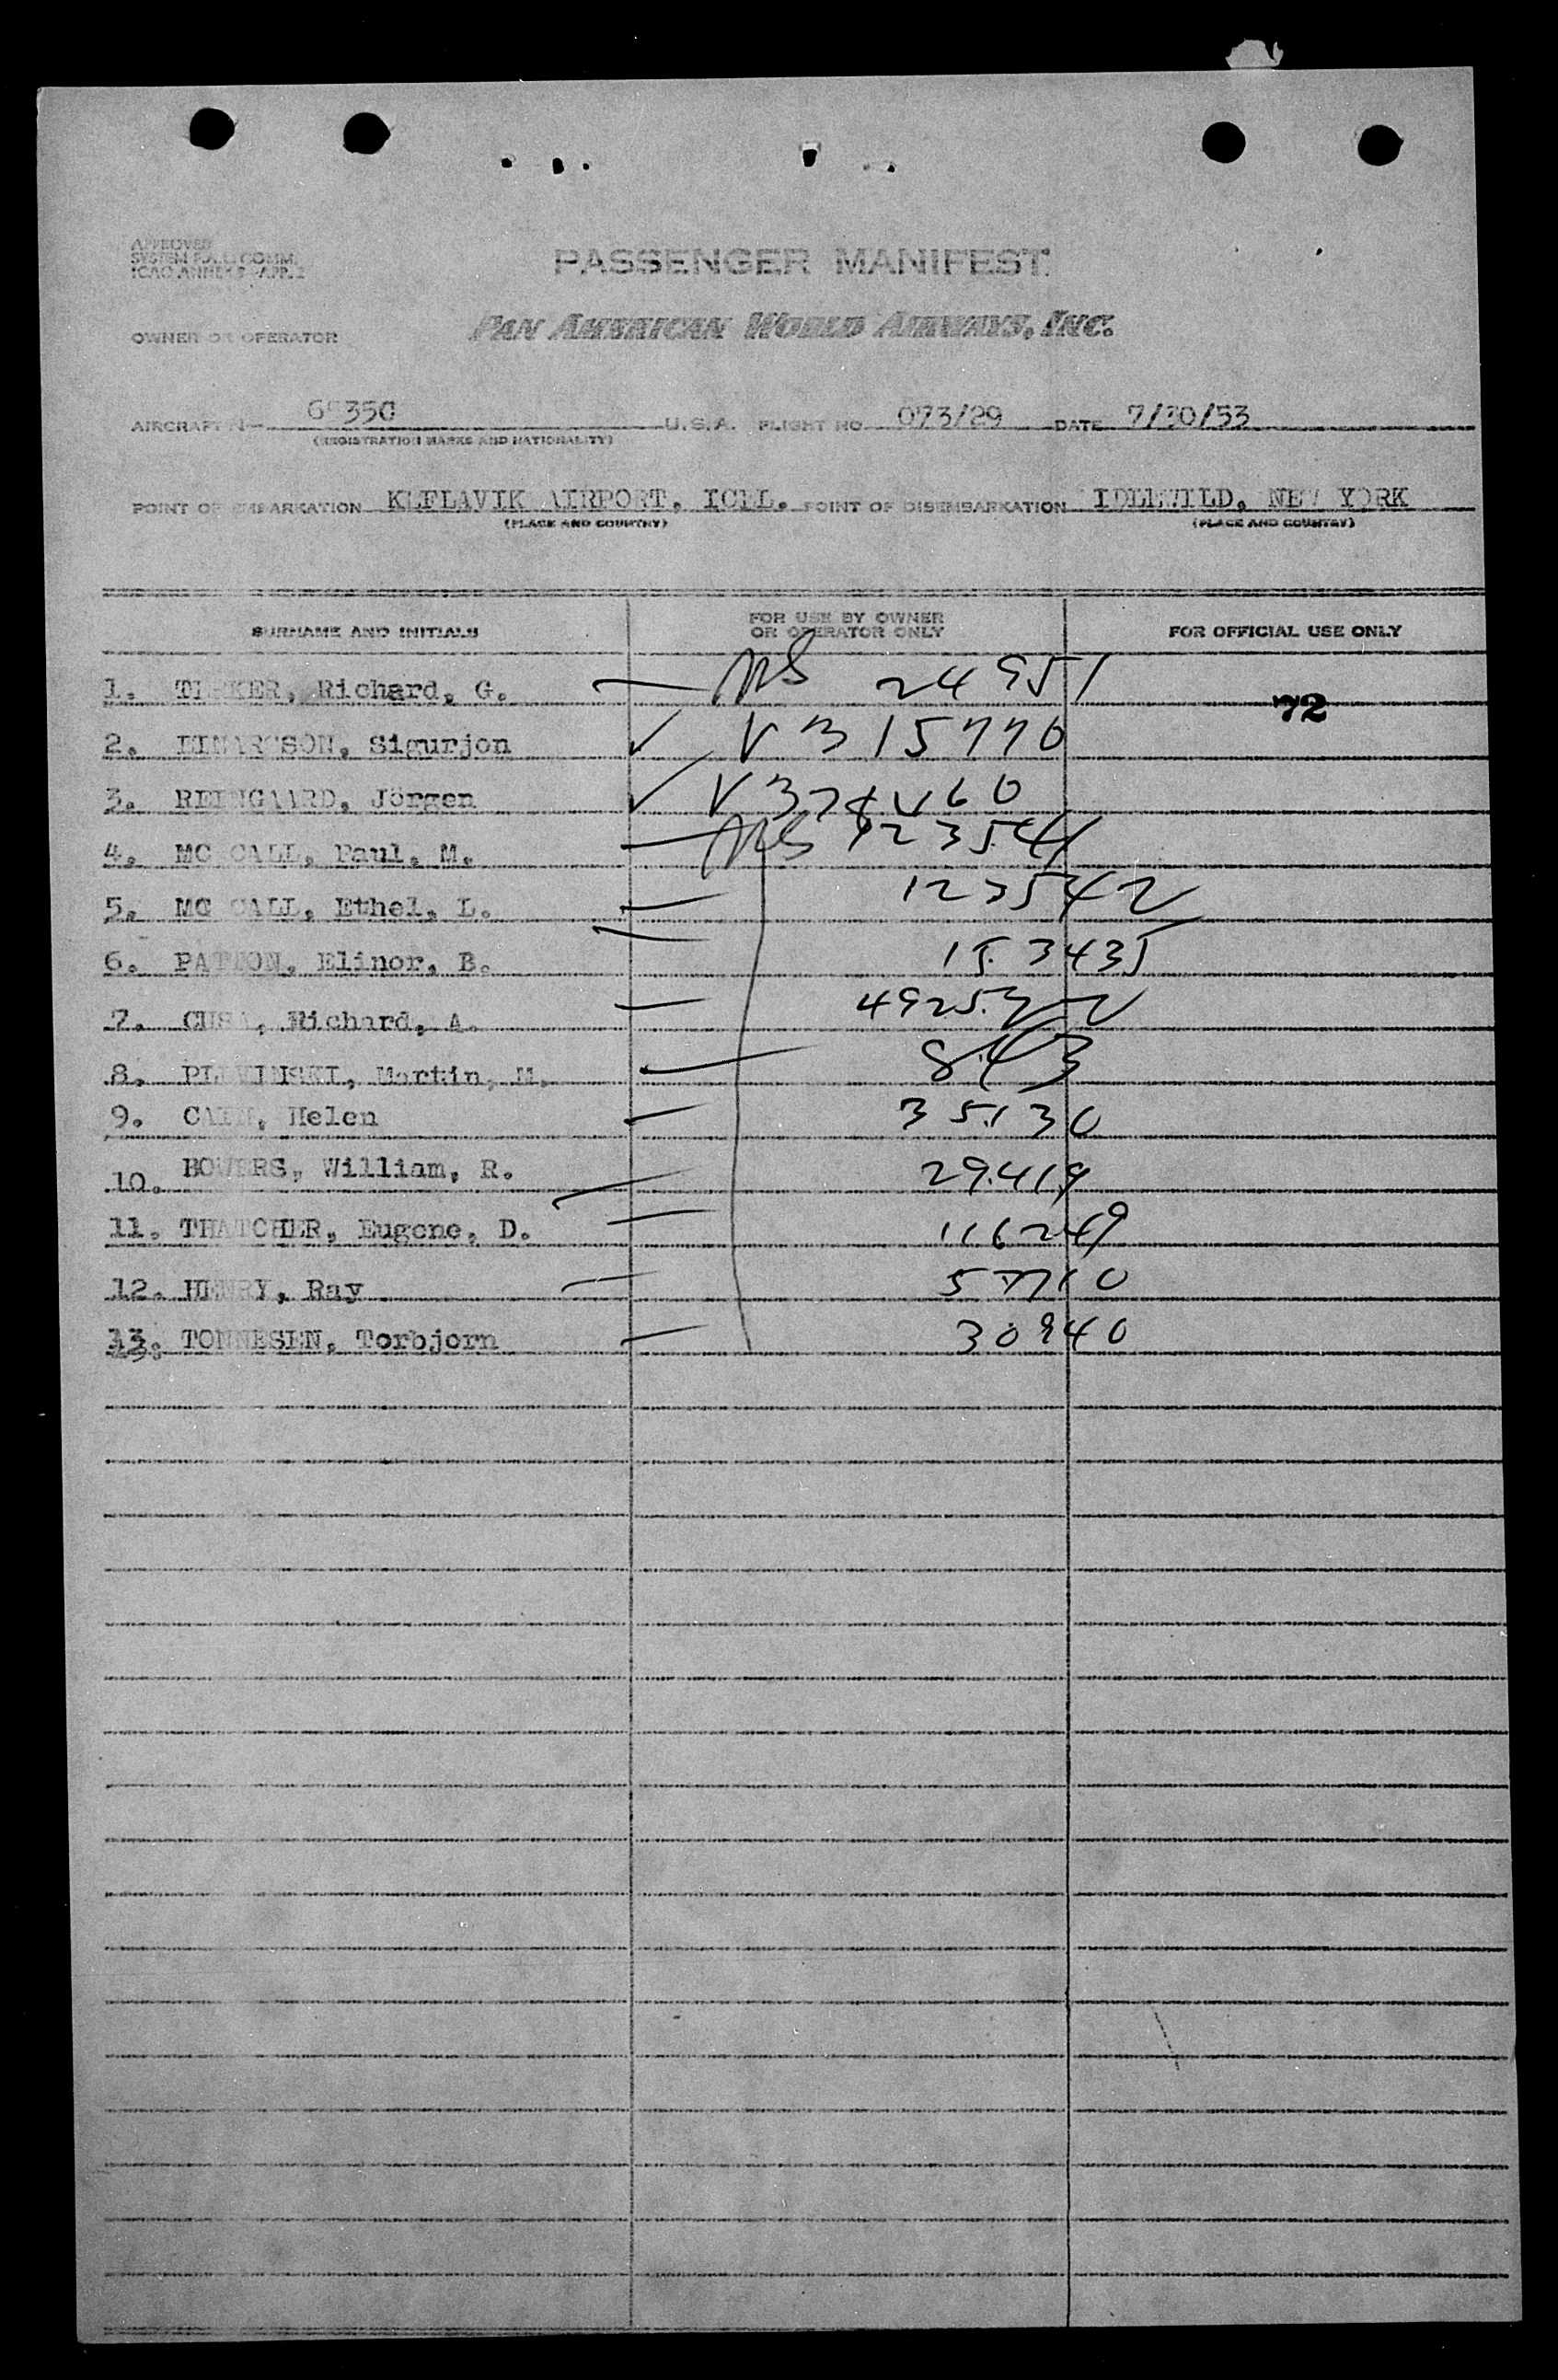 APPROVED
SYSTEM FAL. COMM.
ICAO ANNEX 9-APP. 2
PASSENGER MANIFEST
OWNER OR OPERATOR PAN AMERICAN WORLD AIRWAYS, INC.
AIRCRAFT N- U.S.A. FLIGHT NO. 073/29 DATE 7/30/53
(REGISTRATION MARKS AND NATIONALITY)
POINT OF EMBARKATION KEFLAVIK AIRPORT, ICEL. POINT OF DISEMBARKATION IDLEWILD, NEW YORK
(PLACE AND COUNTRY) (PLACE AND COUNTRY)
SURNAME AND INITIALS FOR USE BY OWNER OR OPERATOR ONLY FOR OFFICIAL USE ONLY
1. Richard, G. 24951 72
2. EINARSSON, Sigurjon ✓ V 315770
3. Jörgen ✓
4. MC CALL, Paul, M. 123541
5. MC CALL, Ethel, L. 123542
6. PATTON, Elinor, B. 153435
7. Richard, A.
8. Martin, M. 843
9. Helen 35130
10. BOWERS, William, R. 29419
11. THATCHER, Eugene, D. 116249
12. HENRY, Ray 57710
13. TONNESEN, Torbjorn 30940